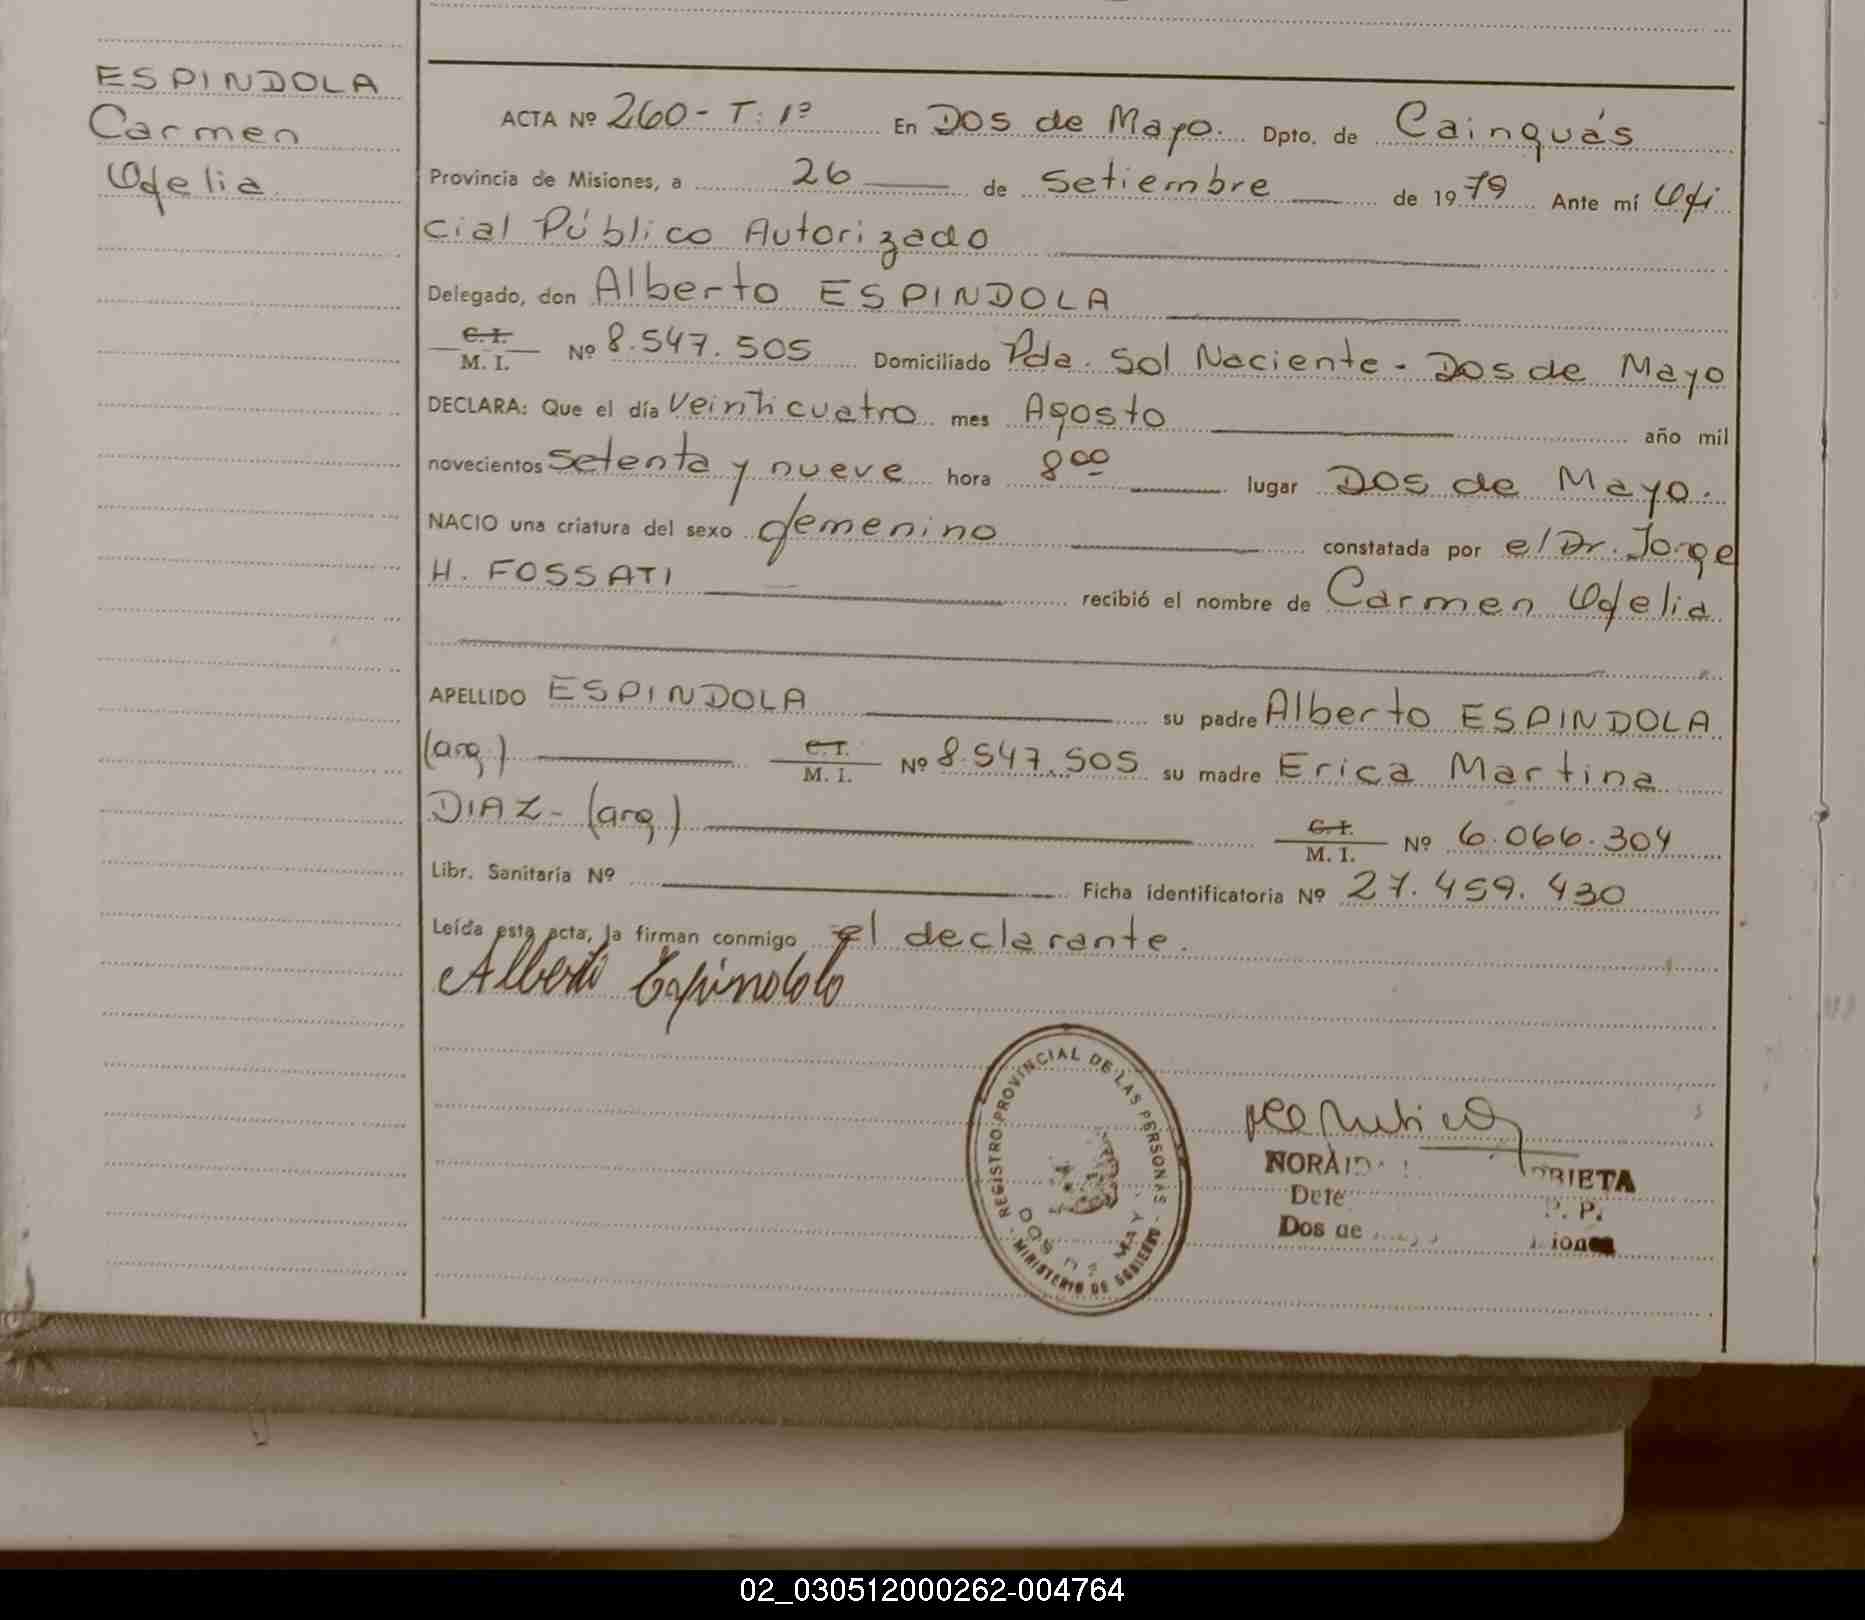 ESPINDOLA
Carmen
Ofelia
ACTA Nº 260 - T: 1º En Dos de Mayo. Dpto. de Cainguás
Provincia de Misiones, a 26 de Setiembre de 1979 Ante mí Ofi
cial Público Autorizado
Delegado, don Alberto ESPINDOLA
C.I.
M. I. Nº 8.547.505 Domiciliado Pda. Sol Naciente - Dos de Mayo
DECLARA: Que el día Veinticuatro mes Agosto año mil
novecientos setenta y nueve hora 8 00 lugar Dos de Mayo.
NACIO una criatura del sexo femenino constatada por el Dr. Jorge
H. FOSSATI recibió el nombre de Carmen Ofelia
APELLIDO ESPINDOLA su padre Alberto ESPINDOLA
(arg.) C.I.
M. I. Nº 8.547.505 su madre Erica Martina
DIAZ - (arg.) C.I.
M. I. Nº 6.066.304
Libr. Sanitaria Nº Ficha identificatoria Nº 27.459.430
Leída esta acta, la firman conmigo el declarante.
Alberto Espindola
REGISTRO PROVINCIAL DE LAS PERSONAS
MINISTERIO DE GOBIERNO
DOS DE MAY
Dos de
02_030512000262-004764